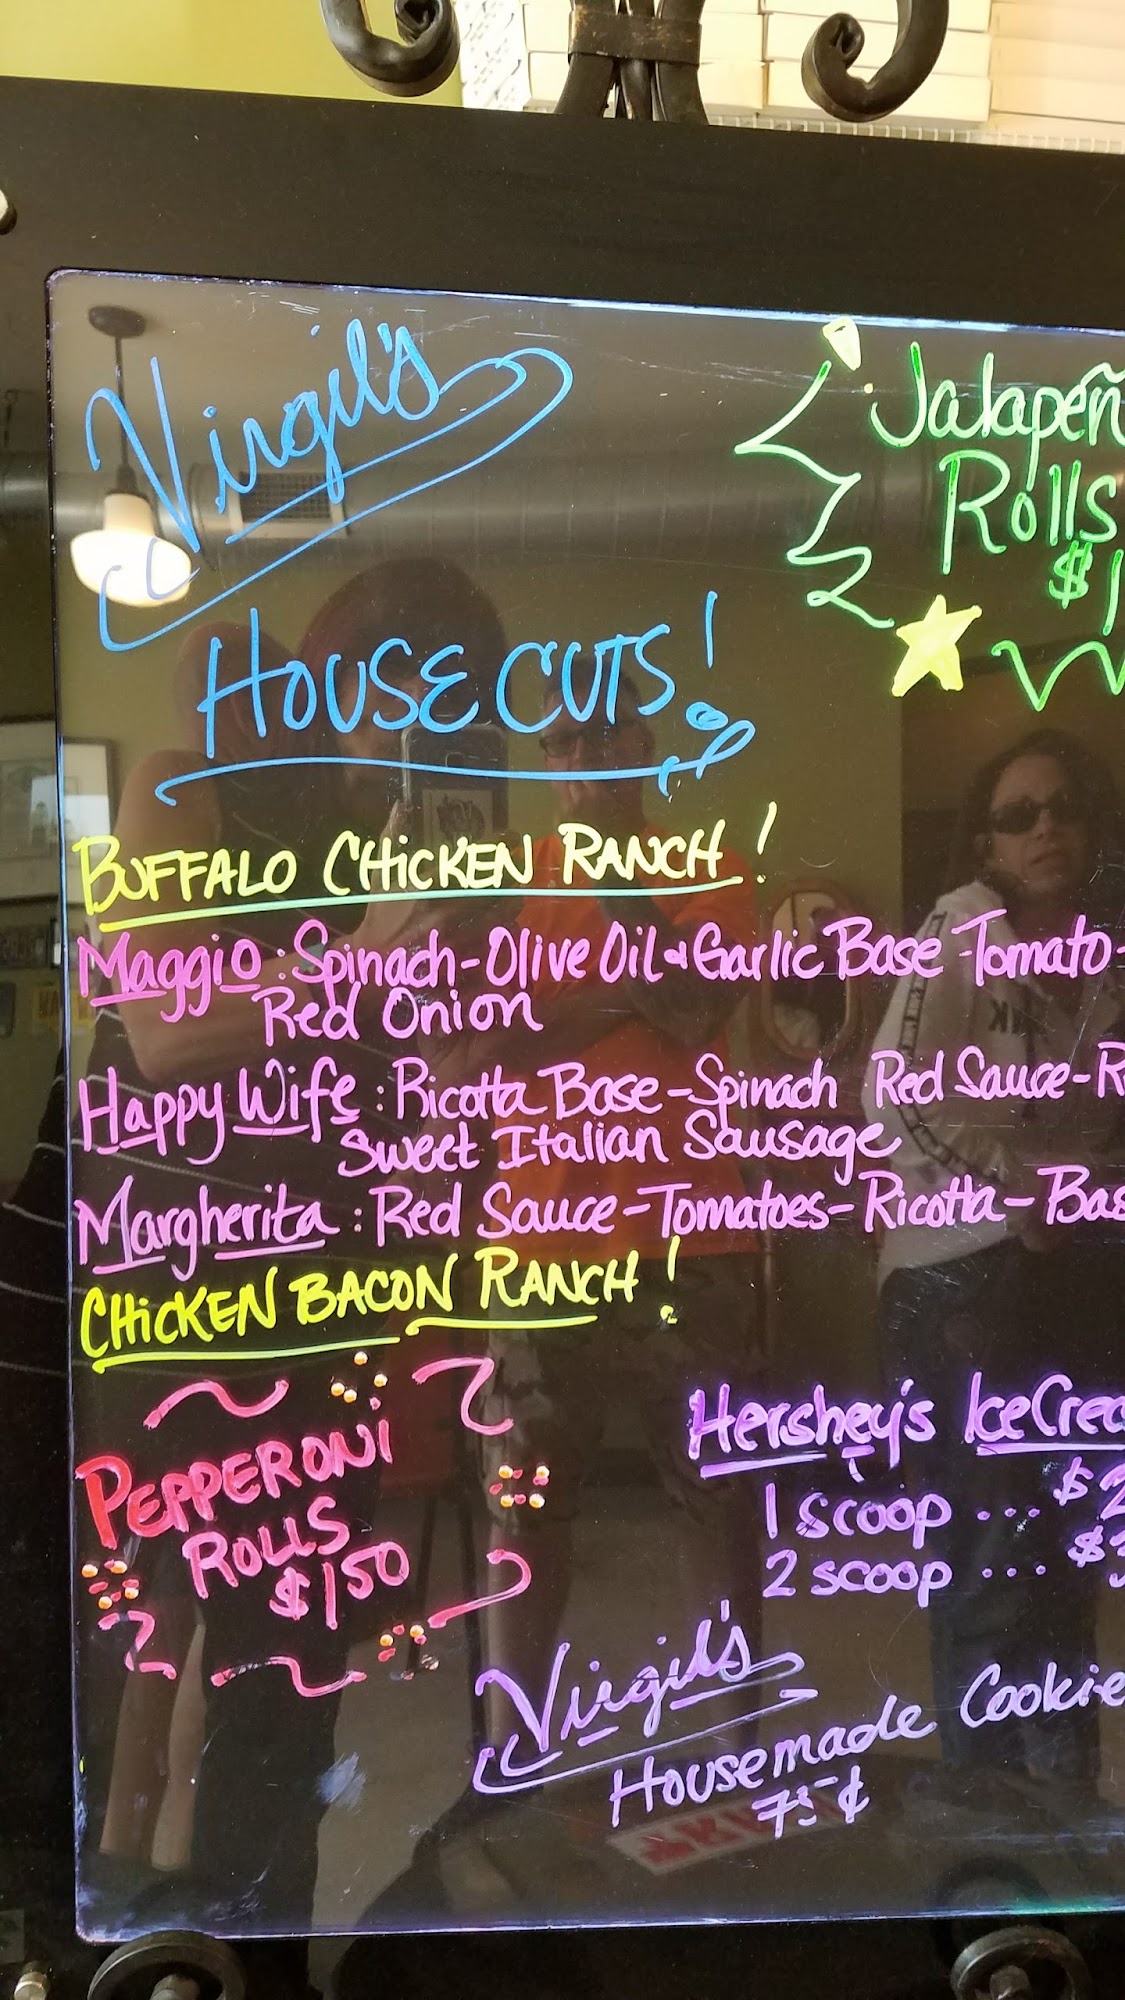 Virgil's
HOUSE CUTS!
Jalapeñ
Rolls
$1
BUFFALO CHiCKEN RANCH!
Maggio: Spinach-Olive Oil & Garlic Base Tomato-
Red Onion
Happy Wife: Ricotta Base-Spinach Red Sauce-R
Sweet Italian Sausage
Margherita: Red Sauce-Tomatoes-Ricotta-Bas
CHiCKEN BACON RANCH!
PEPPERONI
ROLLS
$150
Hershey's IceCrea
1 scoop ... $2
2 scoop ... $3
Virgil's
Housemade Cookie
75¢